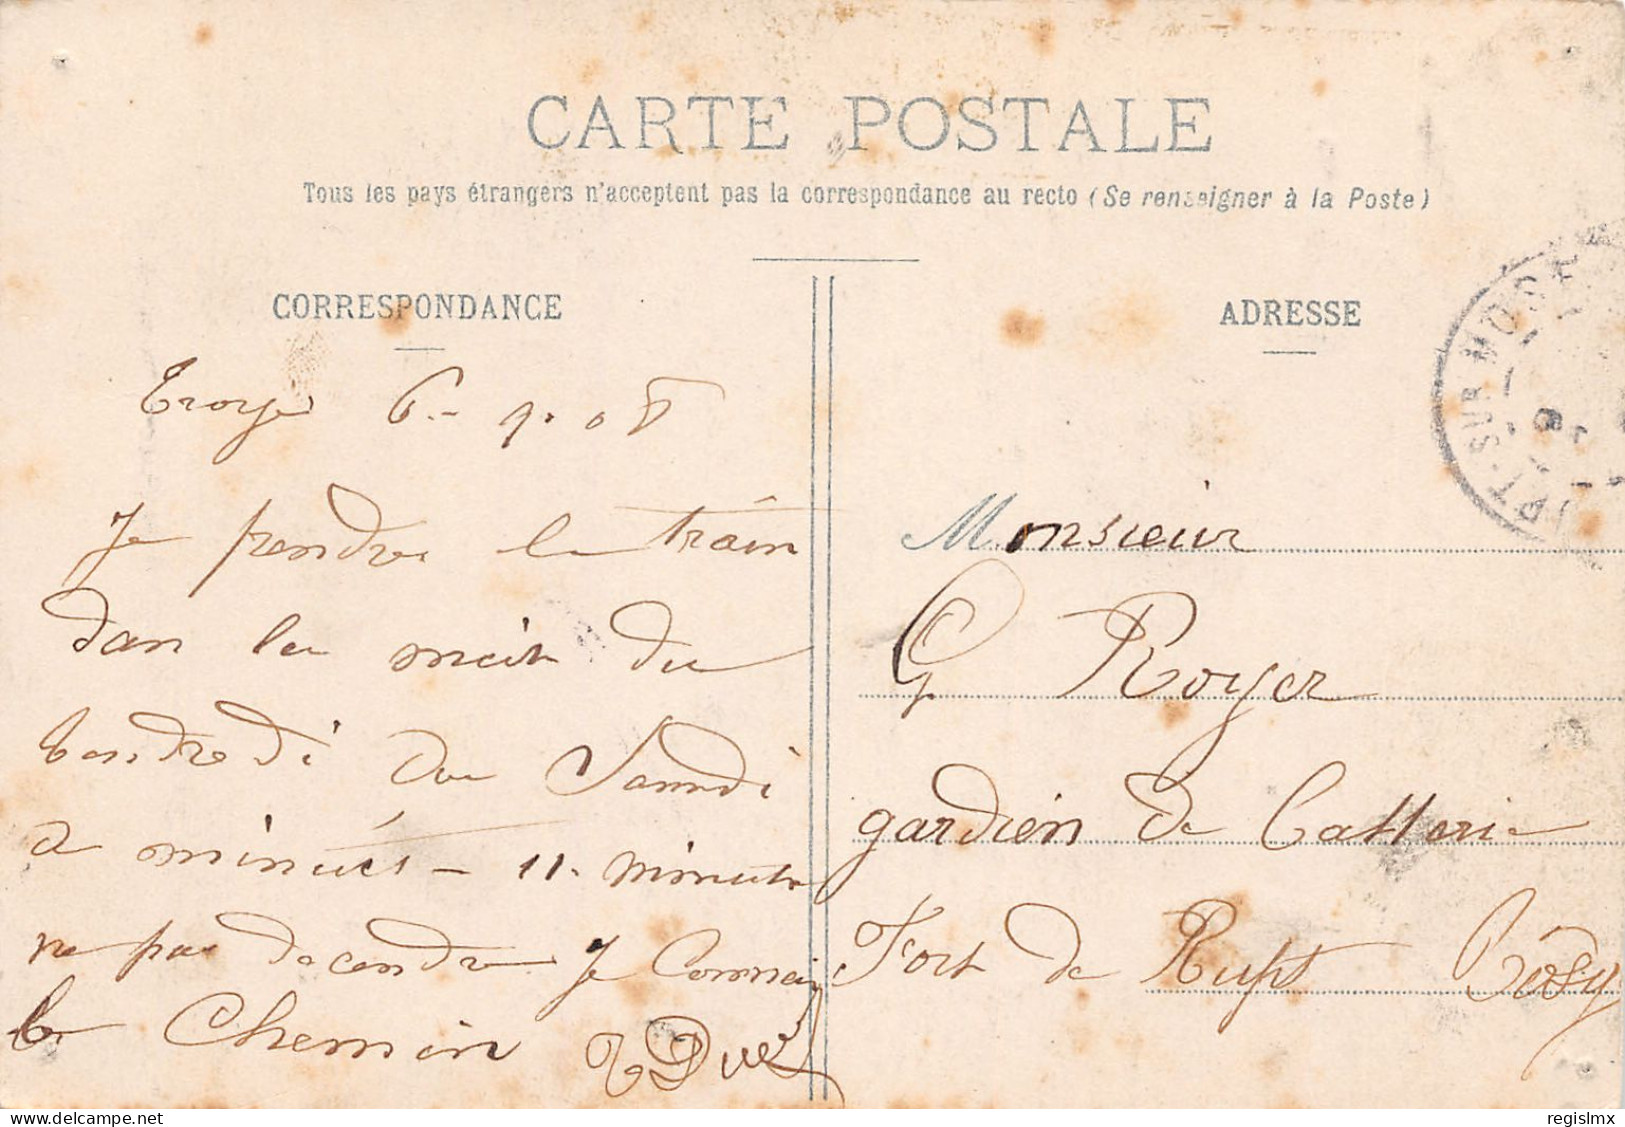 CARTE POSTALE
Tous les pays étrangers n'acceptent pas la correspondance au recto (Se renseigner à la Poste)
CORRESPONDANCE
Troyes 6 - 9. 08
Je prendre le train
dan la nuit du
vendredi au Samdi
a minuit - 11. minute
ne pas decendre Je Connai
le Chemin
ADRESSE
Monsieur
G Royer
gardien de Batterie
Fort de Rupt
SUR MOSE
regislmx